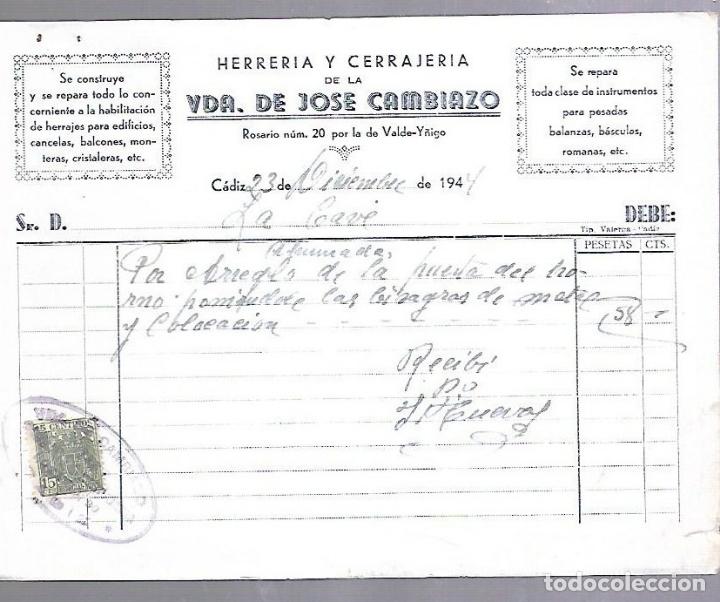 HERRERIA Y CERRAJERIA
DE LA
VDA. DE JOSE CAMBIAZO
Rosario núm. 20 por la de Valde-Yñigo
Se construye
y se repara todo lo con-
cerniente a la habilitación
de herrajes para edificios,
cancelas, balcones, mon-
teras, cristaleras, etc.
Se repara
toda clase de instrumentos
para pesadas
balanzas, básculas,
romanas, etc.
Cádiz 23 de Diciembre de 1944
Sr. D. La Cave
DEBE:
Tip. Valeros - Cadiz
PESETAS CTS.
Por Arreglo de la puerta del ho-
rno poniendole las bisagras de
y Colocación 58
Recibi
P.O
Cuevas
15 CENTIMOS
15
todocoleccion